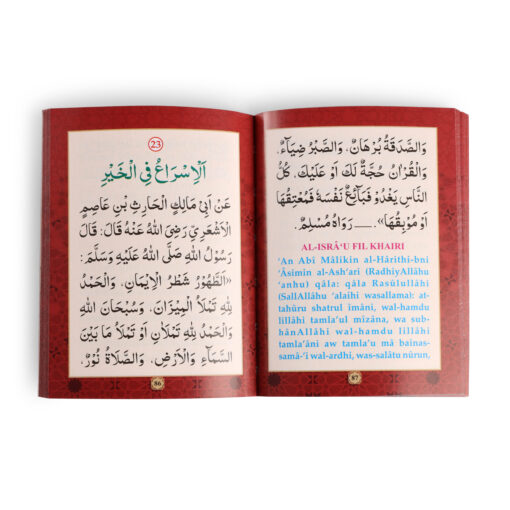 23
اَلْاِسْرَاعُ فِي الْخَيْرِ
عَنْ اَبِيْ مَالِكٍ الْحَارِثِ بْنِ عَاصِمٍ
الْاَشْعَرِيِّ رَضِيَ اللهُ عَنْهُ قَالَ: قَالَ
رَسُوْلُ اللهِ صَلَّى اللهُ عَلَيْهِ وَسَلَّمَ:
«اَلطَّهُوْرُ شَطْرُ الْاِيْمَانِ. وَالْحَمْدُ
لِلّٰهِ تَمْلَأُ الْمِيْزَانَ. وَسُبْحَانَ اللهِ
وَالْحَمْدُ لِلّٰهِ تَمْلَاٰنِ اَوْ تَمْلَأُ مَا بَيْنَ
السَّمَآءِ وَالْاَرْضِ. وَالصَّلَاةُ نُوْرٌ.
86
وَالصَّدَقَةُ بُرْهَانٌ. وَالصَّبْرُ ضِيَآءٌ.
وَالْقُرْاٰنُ حُجَّةٌ لَكَ اَوْ عَلَيْكَ. كُلُّ
النَّاسِ يَغْدُوْ فَبَآئِعٌ نَفْسَهٗ فَمُعْتِقُهَا
اَوْ مُوْبِقُهَا». ــــ رَوَاهُ مُسْلِمٌ.
AL-ISRÂ‘U FIL KHAIRI
‘An Abî Mâlikin al-Hârithi-bni
‘Âsimin al-Ash‘ari (RadhiyAllâhu
‘anhu) qâla: qâla Rasûlullâhi
(SallAllâhu ‘alaihi wasallama): at-
tahûru shatrul îmâni, wal-hamdu
lillâhi tamla’ul mîzâna, wa sub-
hânAllâhi wal-hamdu lillâhi
tamla’âni aw tamla’u mâ bainas-
samâ-’i wal-ardhi, was-salâtu nûrun,
87